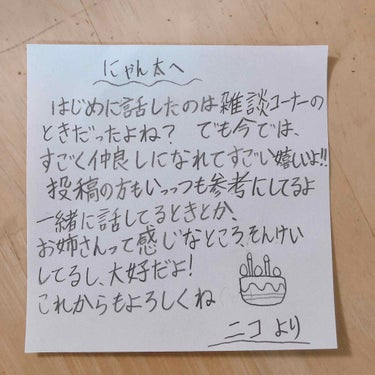 にゃん太へ
はじめに話したのは雑談コーナーの
ときだったよね？ でも今では、
すごく仲良しになれてすごい嬉しいよ!!
投稿の方もいっつも参考にしてるよ
一緒に話してるときとか、
お姉さんって感じなところ、そんけい
してるし、大好だよ!
これからもよろしくね
ニコより